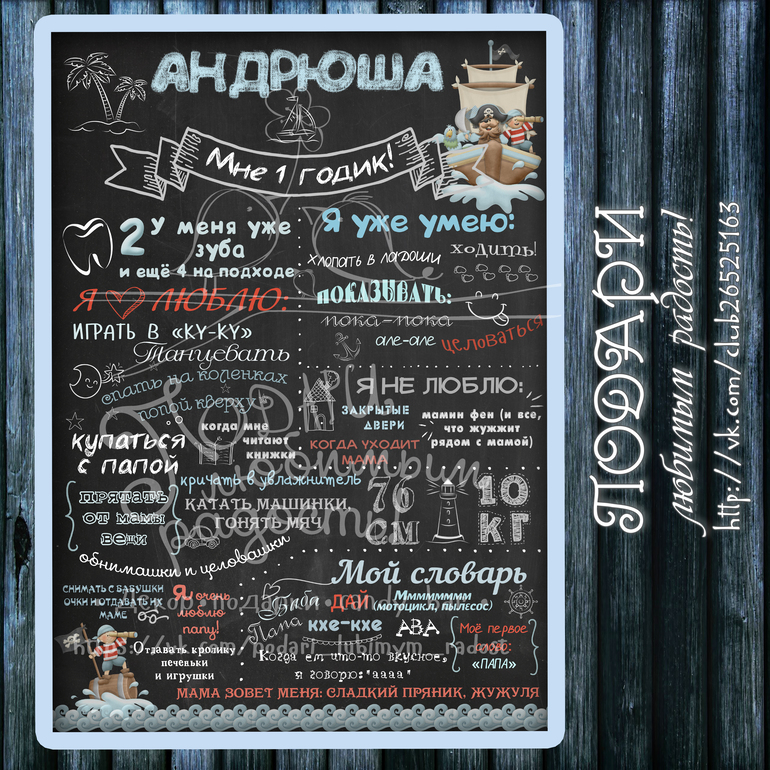 АНДРЮША
Мне 1 годик!
2 У меня уже
зуба
и ещё 4 на подходе
Я ЛЮБЛЮ:
ИГРАТЬ В «КУ-КУ»
Танцевать
спать на коленках
попой кверху
когда мне
читают
книжки
купаться
с папой
кричать в увлажнитель
ПРЯТАТЬ
ОТ МАМЫ
ВЕЩИ
КАТАТЬ МАШИНКИ,
ГОНЯТЬ МЯЧ
обнимашки и целовашки
СНИМАТЬ С БАБУШКИ
ОЧКИ И ОТДАВАТЬ ИХ
МАМЕ
Я очень
люблю
папу!
Отдавать кролику
печеньки
и игрушки
Я уже умею:
хлопать в ладоши
ходить!
ПОКАЗЫВАТЬ:
пока-пока
але-але
целоваться
Я НЕ ЛЮБЛЮ:
ЗАКРЫТЫЕ
ДВЕРИ
мамин фен (и все,
что жужжит
рядом с мамой)
КОГДА УХОДИТ
МАМА
76
СМ
10
КГ
Мой словарь
Баба
ДАЙ
Мммммммм
(мотоцикл, пылесос)
Папа
кхе-кхе
АВА
Моё первое
слово:
«ПАПА»
Когда ем что-то вкусное,
я говорю:"аааа"
МАМА ЗОВЕТ МЕНЯ: СЛАДКИЙ ПРЯНИК, ЖУЖУЛЯ
Подари
любимым
радость
https://vk.com/podari_lubimym_radost
ПОДАРИ
любимым радость!
http://vk.com/club26525163